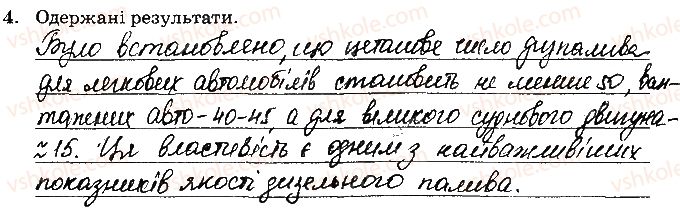 4. Одержані результати.
Було встановлено, що цетанове число дизпалива
для легкових автомобілів становить не менше 50, ван-
тажених авто - 40-45, а для великого суднового двигуна
≈ 15. Ця властивість є одним з найважливіших
показників якості дизельного палива.